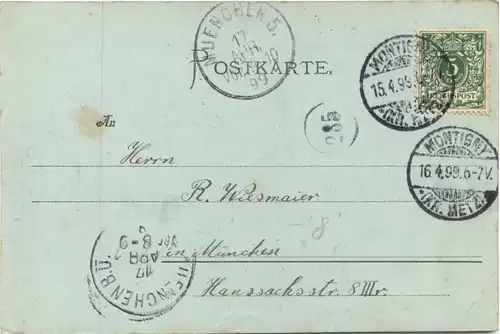 MUENCHEN 5.
17
APR.
99
POSTKARTE.
MONTIGNY
15.4.99.
(KR. METZ)
5
REICHSPOST
235
An
Herrn
MONTIGNY
16.4.99.6-7V.
(KR. METZ)
R. Wiesmaier
8
in München
MUENCHEN B.Ü.
17
APR
8-9
Hanssachsstr. 8 IIIr.